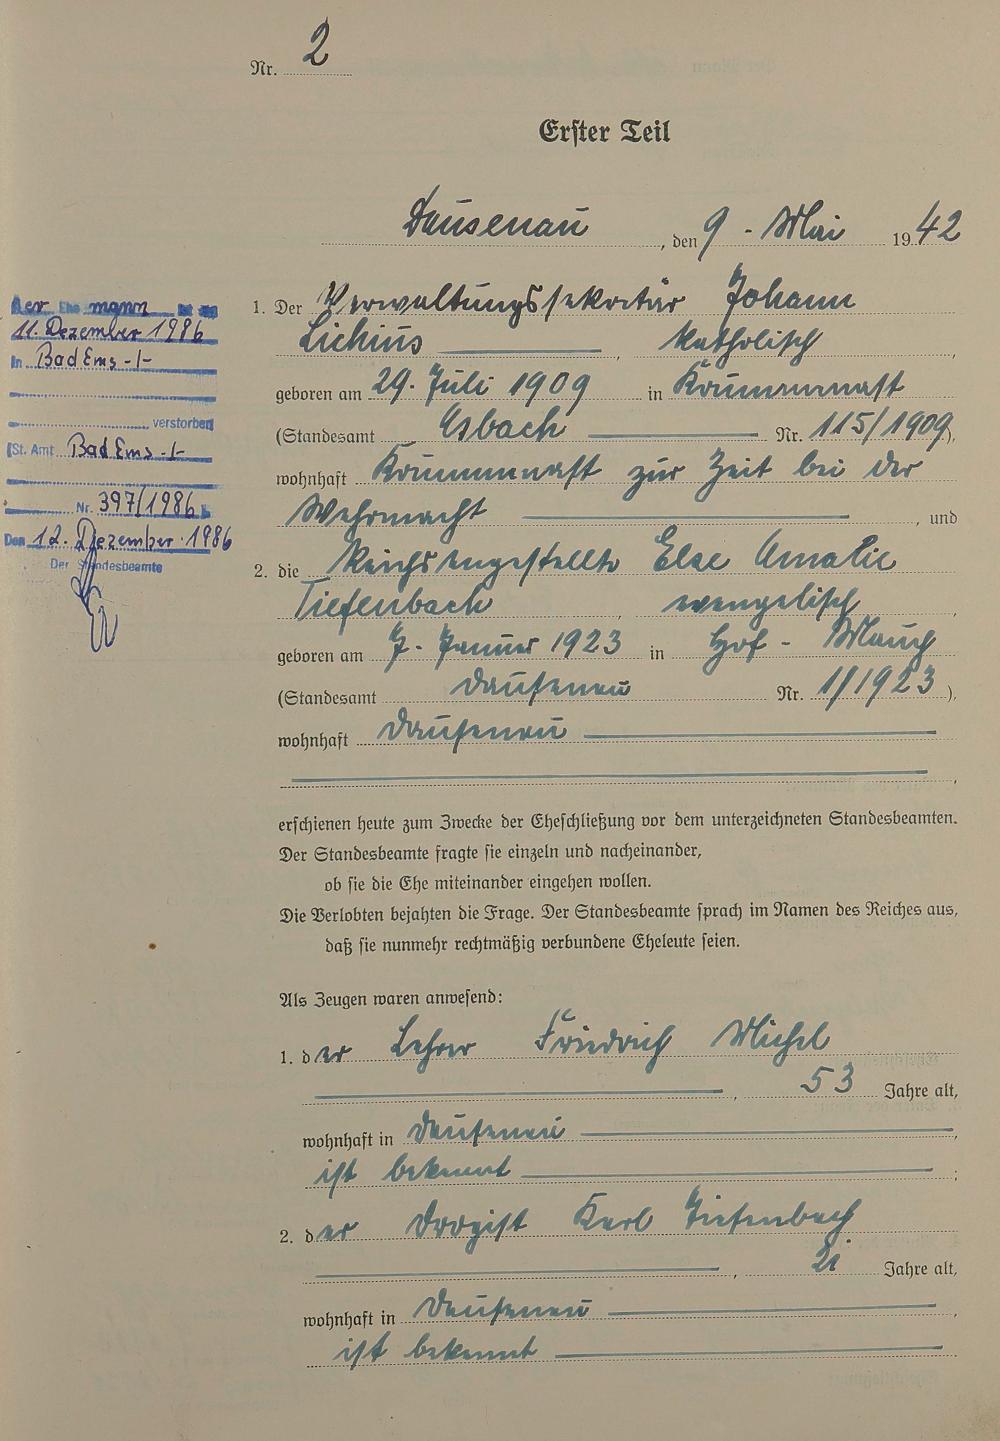 Nr. 2
Erster Teil
Dausenau, den 9. Mai 1942
1. Der Verwaltungssekretär Johann
Lichius, katholisch,
geboren am 29. Juli 1909 in
(Standesamt Asbach Nr. 115/1909),
wohnhaft zur Zeit bei der
Wehrmacht, und
2. die Reichsangestellte Else Amalie
Tiefenbach, evangelisch,
geboren am 7. Januar 1923 in Hof-Mauch
(Standesamt Dausenau Nr. 1/1923),
wohnhaft Dausenau,
erschienen heute zum Zwecke der Eheschließung vor dem unterzeichneten Standesbeamten.
Der Standesbeamte fragte sie einzeln und nacheinander,
ob sie die Ehe miteinander eingehen wollen.
Die Verlobten bejahten die Frage. Der Standesbeamte sprach im Namen des Reiches aus,
daß sie nunmehr rechtmäßig verbundene Eheleute seien.
Als Zeugen waren anwesend:
1. der Lehrer Friedrich Michel
, 53 Jahre alt,
wohnhaft in Dausenau,
ist bekannt;
2. der Drogist Karl Tiefenbach
, 21 Jahre alt,
wohnhaft in Dausenau,
ist bekannt
Der Ehemann ist am
11. Dezember 1986
in Bad Ems -/-
verstorben
(St. Amt Bad Ems -/-
Nr. 397/1986)
Den 12. Dezember 1986
Der Standesbeamte